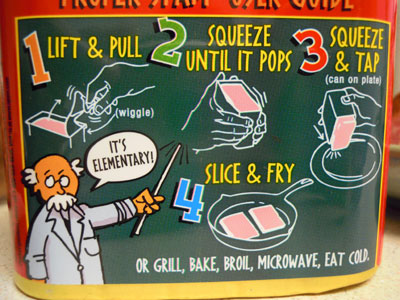 PROPER SPAM® USER GUIDE
1 LIFT & PULL
(wiggle)
2 SQUEEZE
UNTIL IT POPS
3 SQUEEZE
& TAP
(can on plate)
IT'S
ELEMENTARY!
4 SLICE & FRY
OR GRILL, BAKE, BROIL, MICROWAVE, EAT COLD.